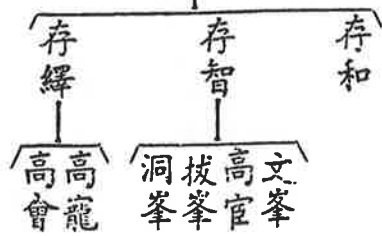 存和
存智
存繹
文峯
高官
拔峯
洞峯
高寵
高會